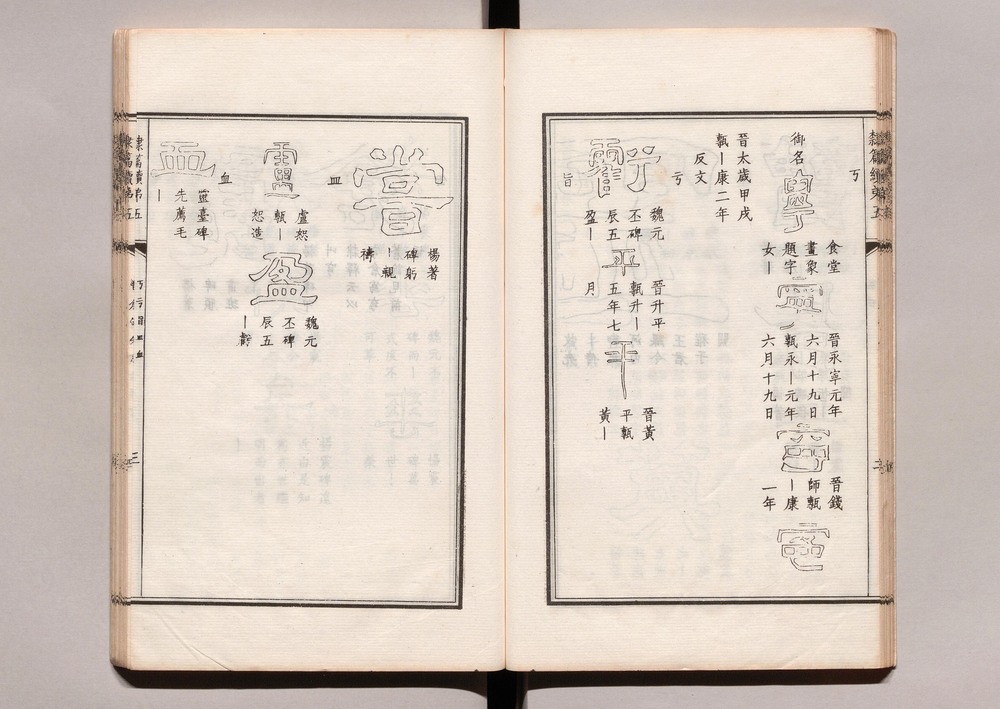 丂
御名
食堂
畫象
題字
女〡
晉永寧元年
六月十九日
甎永〡元年
六月十九日
晉錢
師甎
〡康
一年
晉太歲甲戌
甎〡康二年
反文
亏
魏元
丕碑
辰五
盈〡
平
晉升平
甎升〡
五年七
月
平
晉黃
平甎
黃〡
旨
嘗
楊著
碑躬
〡親
禱
皿
盧恕
甎〡
恕造
盈
魏元
丕碑
辰五
〡虧
血
血
靈臺碑
先薦毛
〡
隸篇續弟五